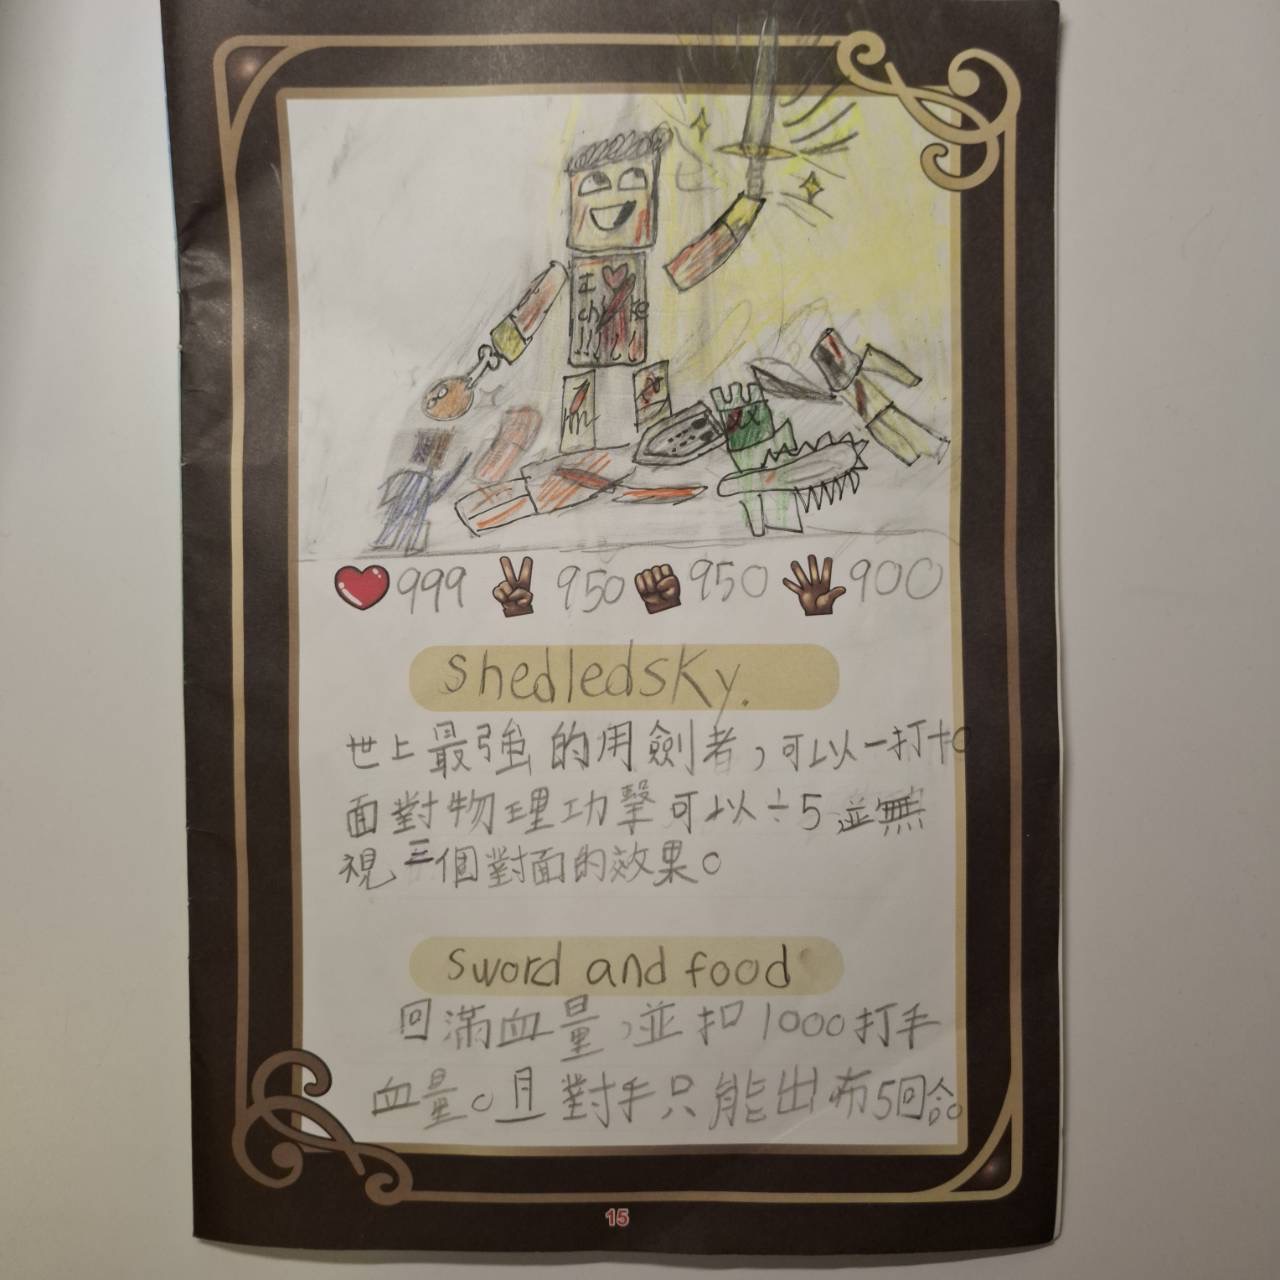 I ❤
999 950 950 900
shedledsky.
世上最強的用劍者，可以一打十。
面對物理功擊可以÷5並無
視三個對面的效果。
sword and food
回滿血量，並扣1000打手
血量。且對手只能出布5回合。
15